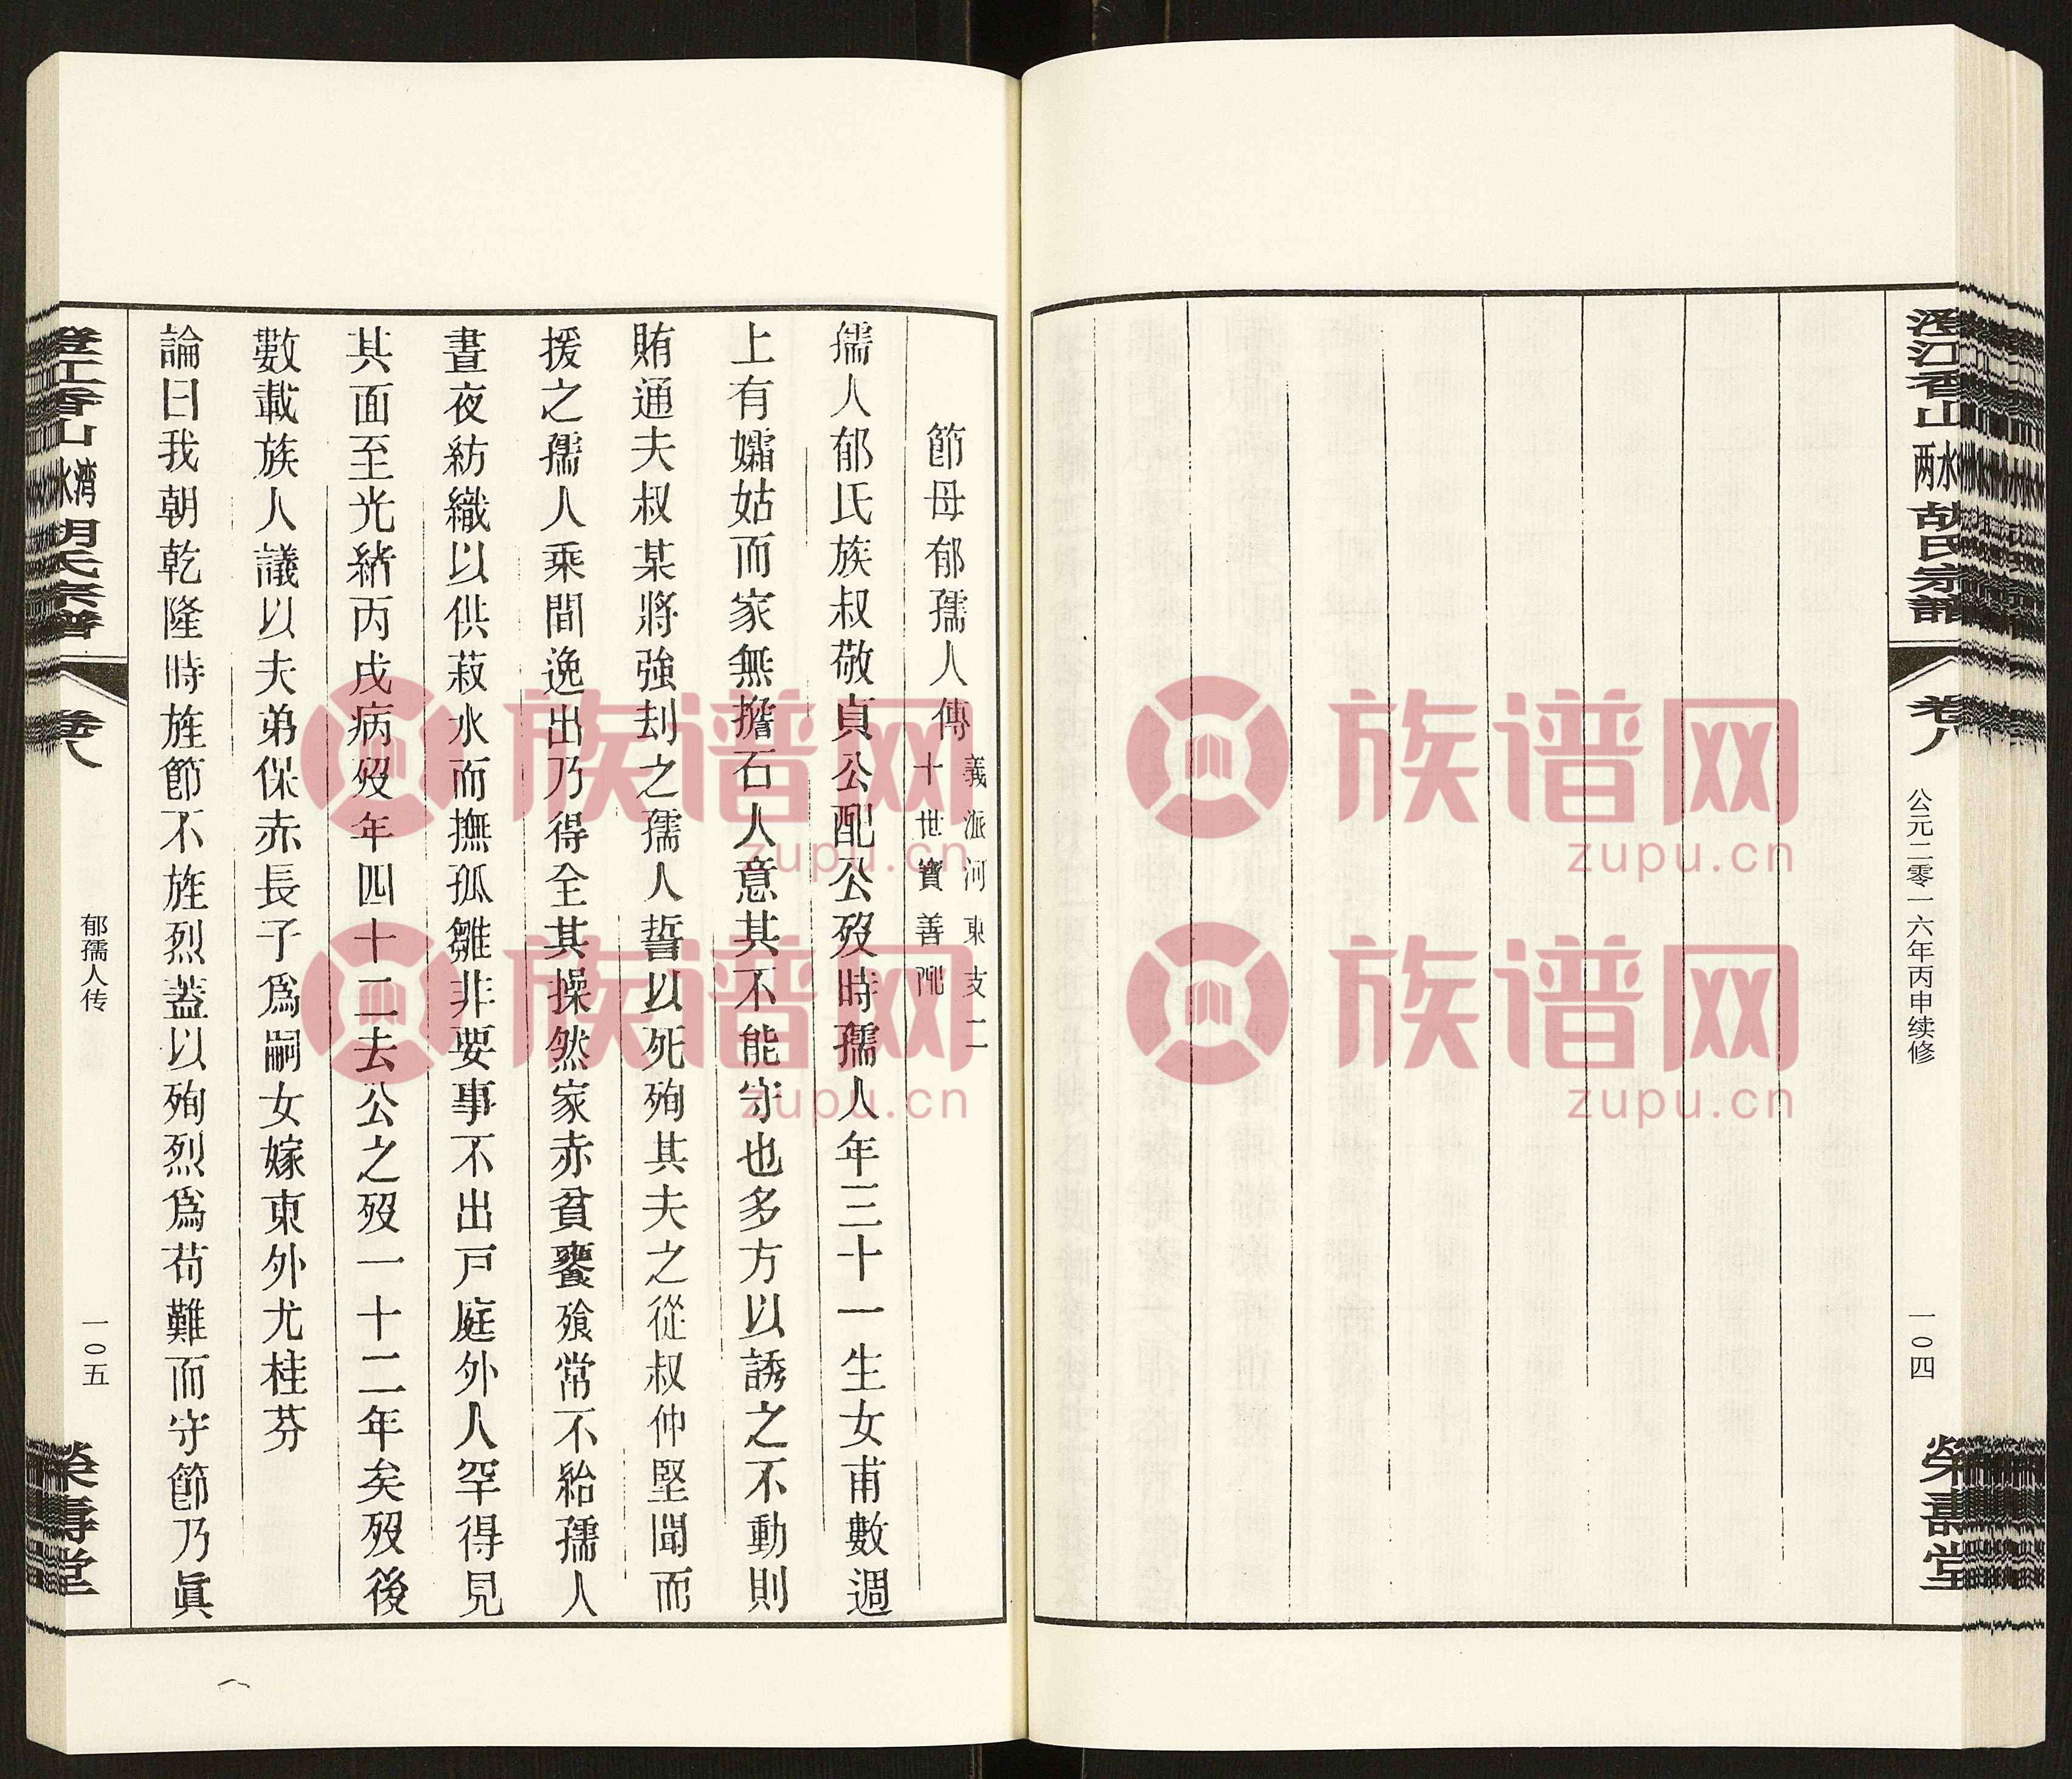 澄江香山两水胡氏宗譜
卷八
公元二零一六年丙申续修
一〇四
榮壽堂
節母郁孺人傳
義派河東支二
十世寶善配
孺人郁氏族叔敬貞公配公歿時孺人年三十一生女甫數週
上有孀姑而家無擔石人意其不能守也多方以誘之不動則
賄通夫叔某將強刦之孺人誓以死殉其夫之從叔仲堅聞而
援之孺人乘間逸出乃得全其操然家赤貧饔飧常不給孺人
晝夜紡織以供菽水而撫孤雛非要事不出戸庭外人罕得見
其面至光緒丙戌病歿年四十二去公之歿一十二年矣歿後
數載族人議以夫弟保赤長子爲嗣女嫁東外尤桂芬
論曰我朝乾隆時旌節不旌烈蓋以殉烈爲苟難而守節乃眞
澄江香山水湾胡氏宗譜
卷八
郁孺人传
一〇五
榮壽堂
族谱网
zupu.cn
族谱网
zupu.cn
族谱网
zupu.cn
族谱网
zupu.cn